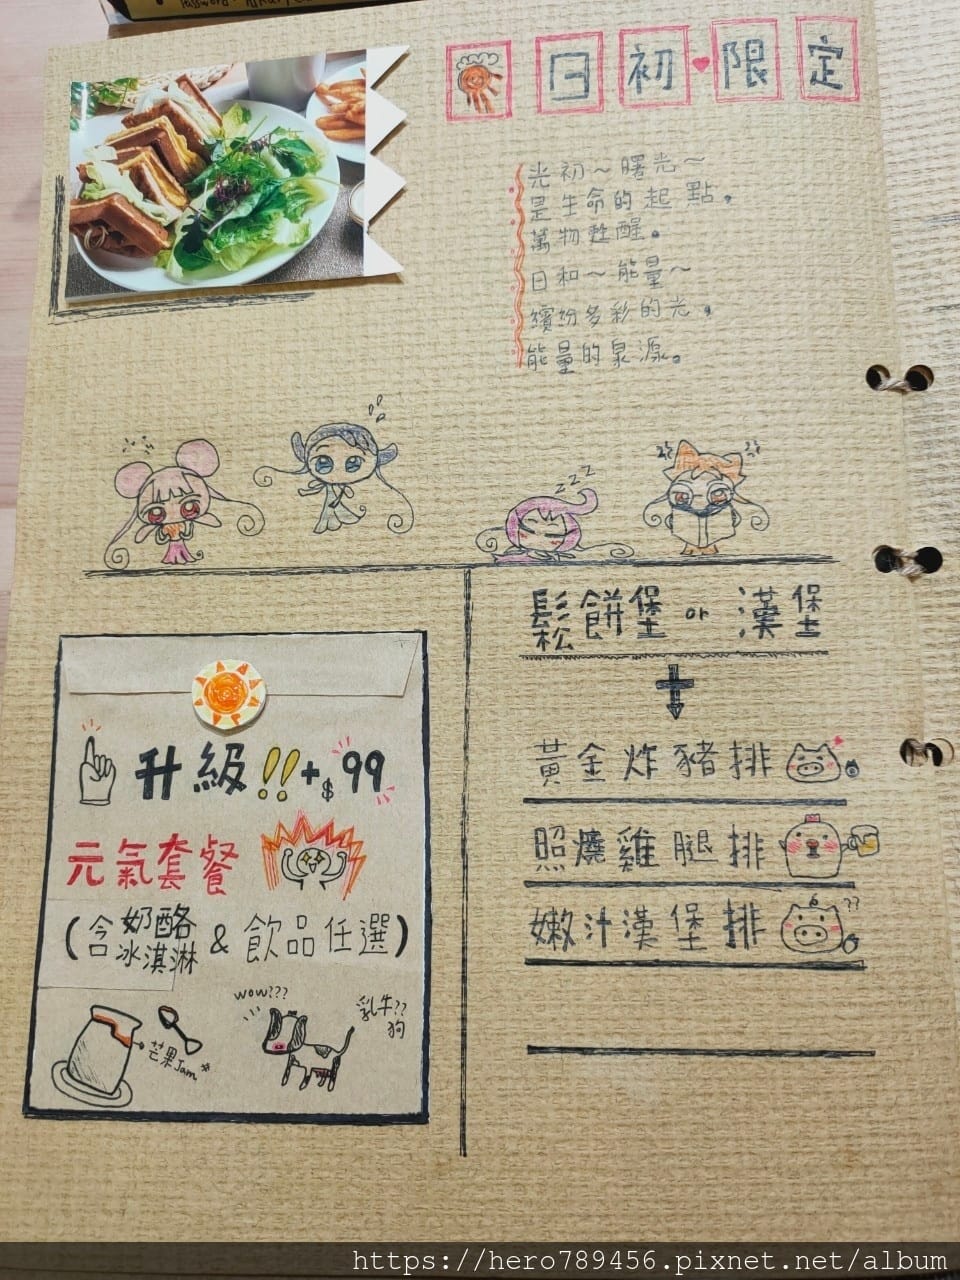 Password:
日初♥限定
光初～曙光～
是生命的起點。
萬物甦醒。
日和～能量～
繽紛多彩的光。
能量的泉源。
zzz
鬆餅堡 or 漢堡
升級!!+$99
元氣套餐
(含奶酪冰淇淋 & 飲品任選)
芒果Jam
wow???
乳牛??
狗
黃金炸豬排
照燒雞腿排
嫩汁漢堡排
??
https://hero789456.pixnet.net/album